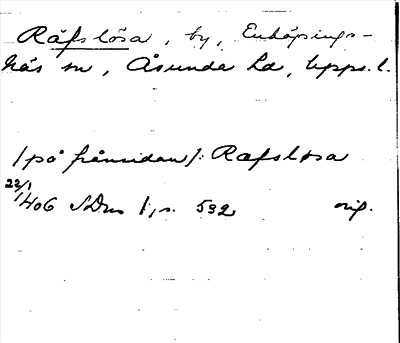 Räfslösa, by, Enköpings-
näs sn, Åsunda hd, Upps. l.
/på frånsidan/: Rafsløsa
22/1
1406 SDns 1, s. 532 orig.